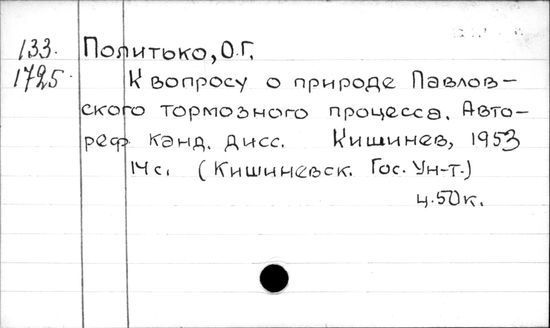 133. Политько, О.Г.
1725. К вопросу о природе Павлов-
ского тормозного процесса. Авто-
реф канд. дисс. Кишинев, 1953
14с. (Кишиневск. Гос. Ун-т.)
ц.50к.